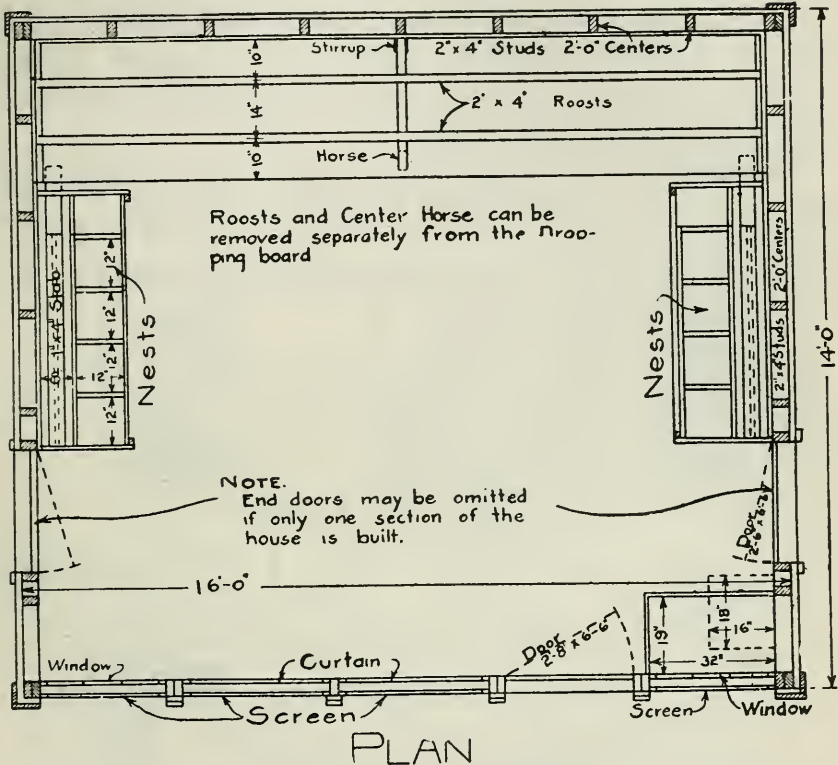 Stirrup
2" x 4" Studs 2'-0" Centers
10"
14"
10"
2" x 4" Roosts
Horse
Roosts and Center Horse can be
removed separately from the Drop-
ping board
Nests
1" x 4"
12"
12"
12"
12"
12"
Nests
2" x 4" Studs 2'-0" Centers
14'-0"
NOTE.
End doors may be omitted
if only one section of the
house is built.
Door
2'-6" x 6'-6"
16'-0"
Door
2'-8" x 6'-6"
19"
18"
16"
32"
Window
Curtain
Screen
Screen
Window
PLAN